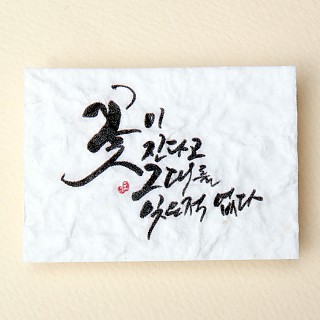 꽃이
진다고
그대를
잊은적 없다